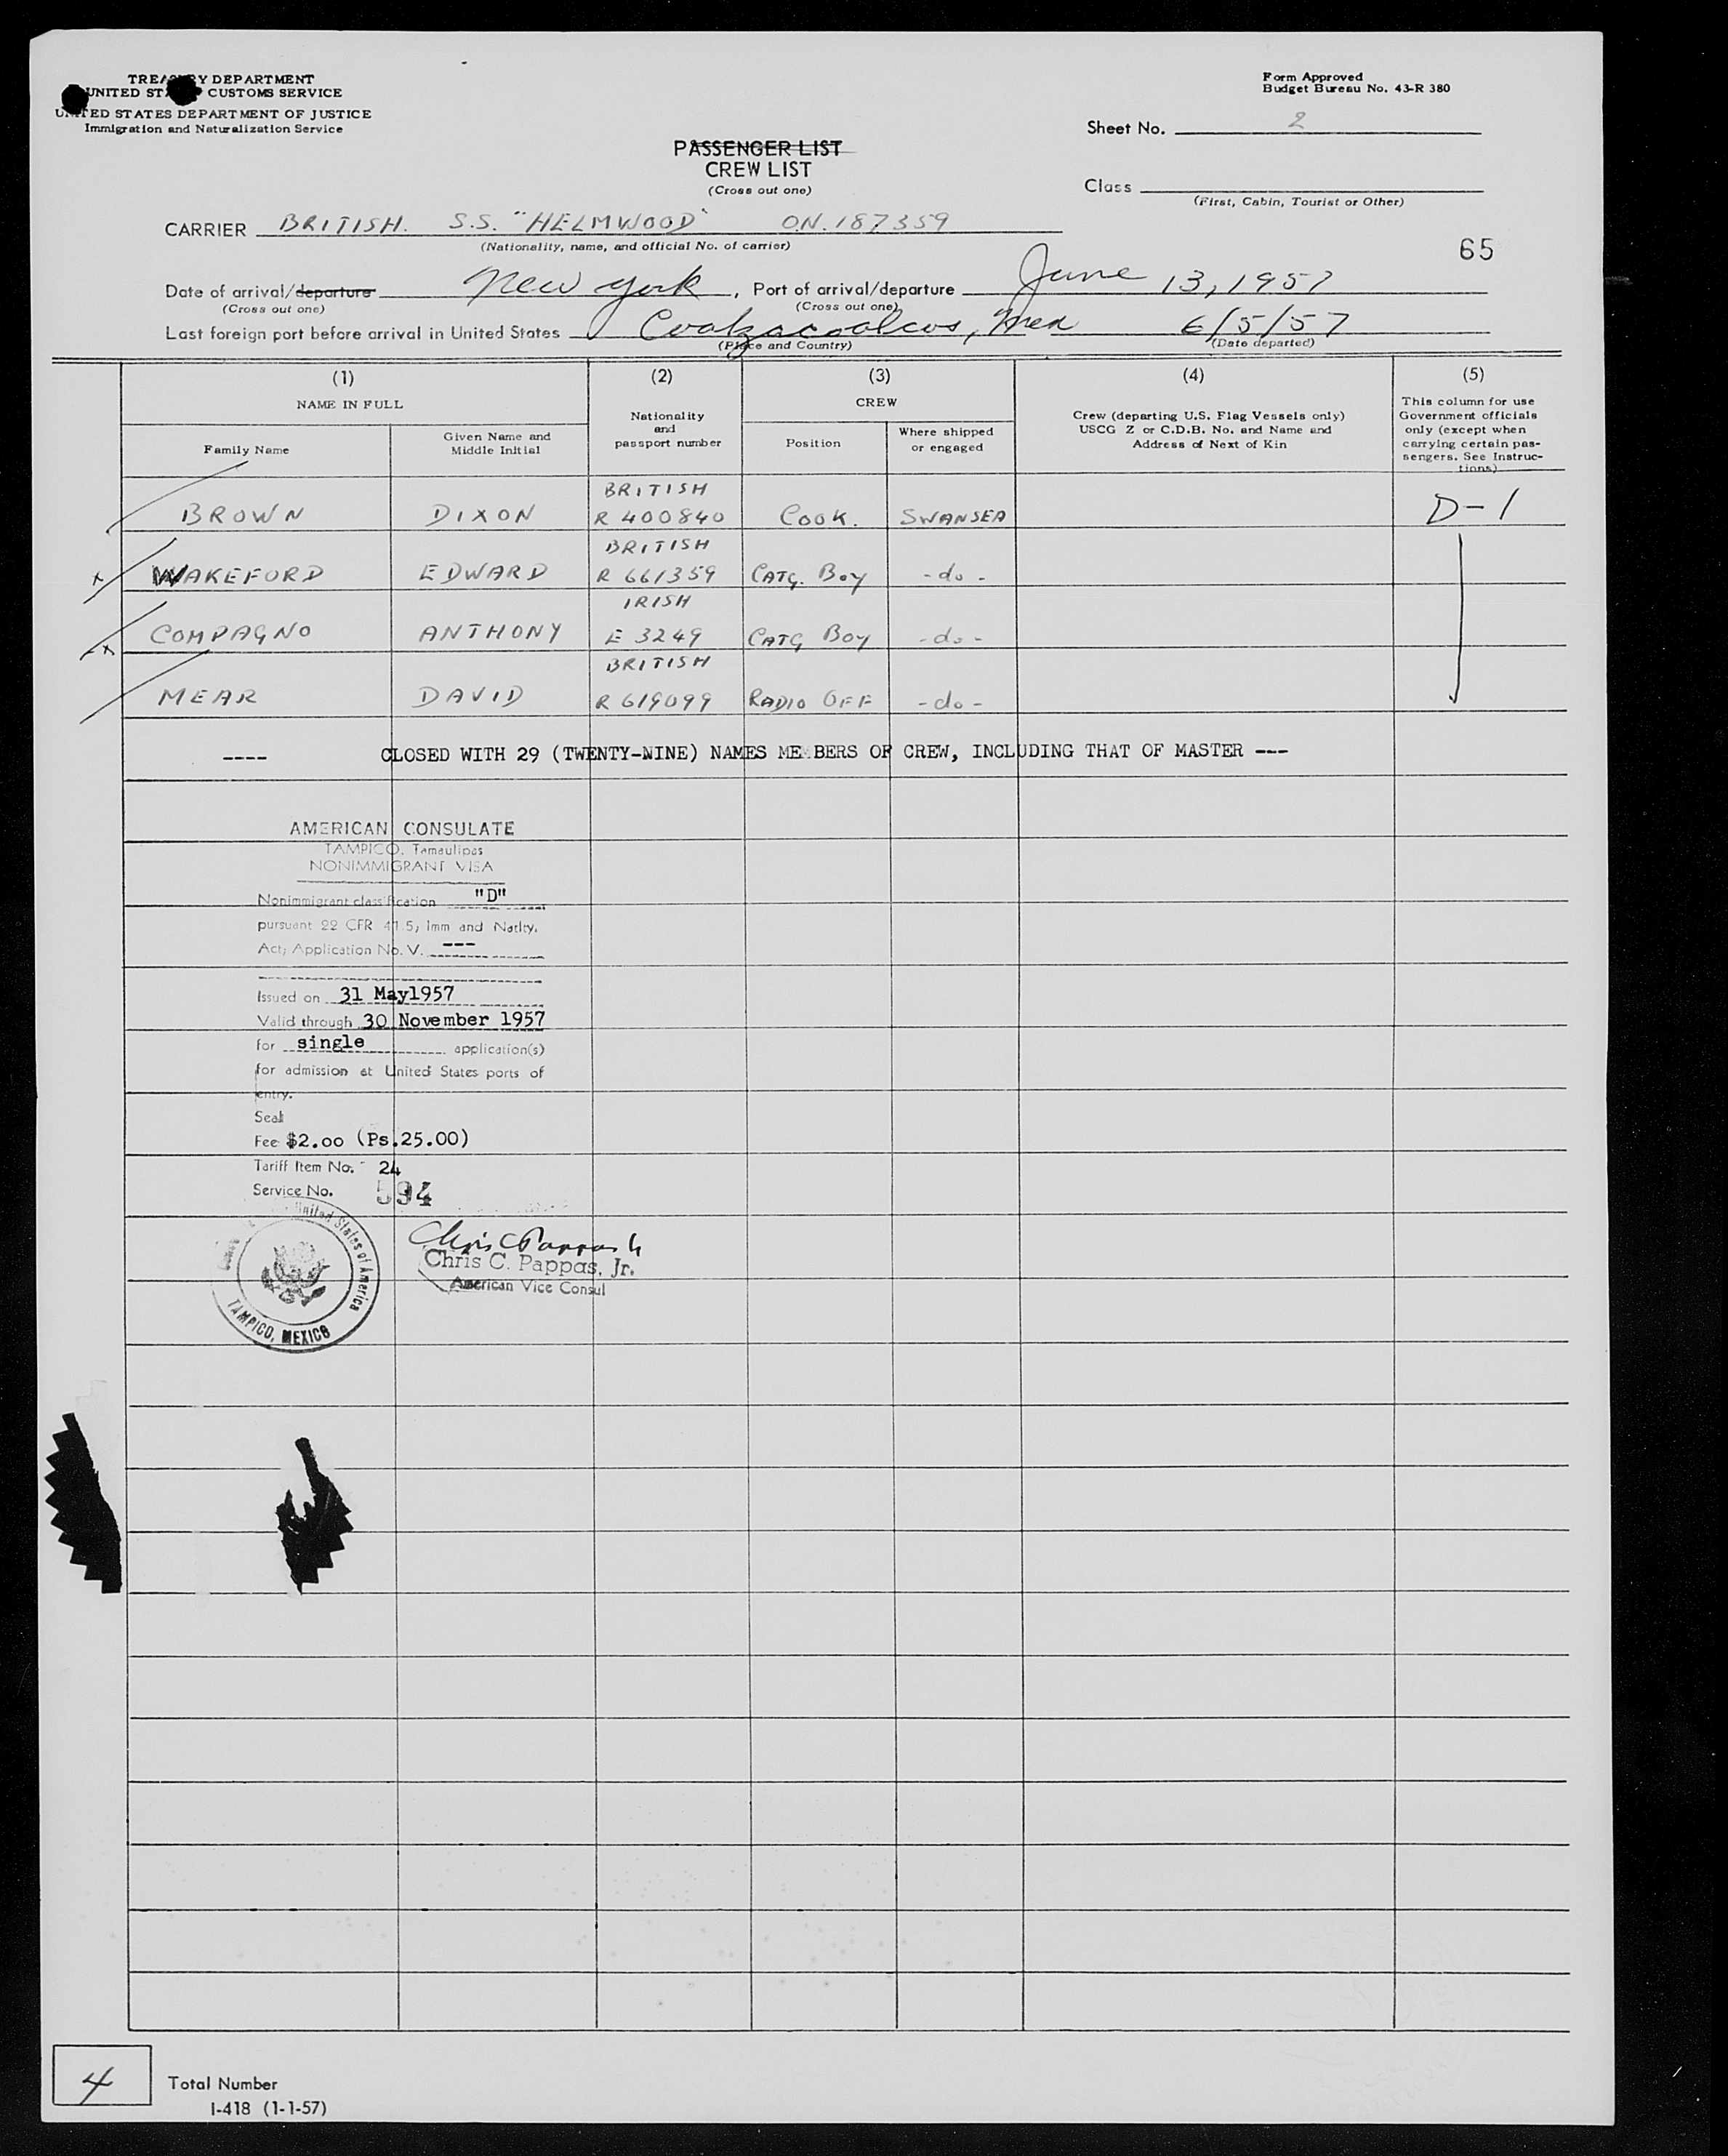 TREASURY DEPARTMENT
UNITED STATES CUSTOMS SERVICE
UNITED STATES DEPARTMENT OF JUSTICE
Immigration and Naturalization Service
Form Approved
Budget Bureau No. 43-R 380
Sheet No. 2
PASSENGER LIST
CREW LIST
(Cross out one)
Class
(First, Cabin, Tourist or Other)
CARRIER BRITISH. S.S. "HELMWOOD" O.N. 187359
(Nationality, name, and official No. of carrier)
65
Date of arrival/departure New York, Port of arrival/departure June 13, 1957
(Cross out one) (Cross out one)
Last foreign port before arrival in United States Coatzacoalcos, Mex 6/5/57
(Place and Country) (Date departed)
(1) (2) (3) (4) (5)
NAME IN FULL
Family Name
Given Name and
Middle Initial
Nationality
and
passport number
CREW
Position
Where shipped
or engaged
Crew (departing U.S. Flag Vessels only)
USCG Z or C.D.B. No. and Name and
Address of Next of Kin
This column for use
Government officials
only (except when
carrying certain pas-
sengers. See Instruc-
tions)
BRITISH
BROWN DIXON R 400840 COOK. SWANSEA D-1
BRITISH
x WAKEFORD EDWARD R 661359 CATG. BOY - do -
IRISH
x COMPAGNO ANTHONY E 3249 CATG BOY - do -
BRITISH
MEAR DAVID R 619099 RADIO OFF - do -
---- CLOSED WITH 29 (TWENTY-NINE) NAMES MEMBERS OF CREW, INCLUDING THAT OF MASTER ---
AMERICAN CONSULATE
TAMPICO, Tamaulipas
NONIMMIGRANT VISA
Nonimmigrant classification "D"
pursuant 22 CFR 41.5; Imm and Natlty.
Act; Application No. V. ---
Issued on 31 May1957
Valid through 30 November 1957
for single application(s)
for admission at United States ports of
entry.
Seal
Fee $2.00 (Ps.25.00)
Tariff Item No. 24
Service No. 594
United States of America
TAMPICO, MEXICO
Chris C Pappas Jr
Chris C. Pappas, Jr.
American Vice Consul
4
Total Number
I-418 (1-1-57)